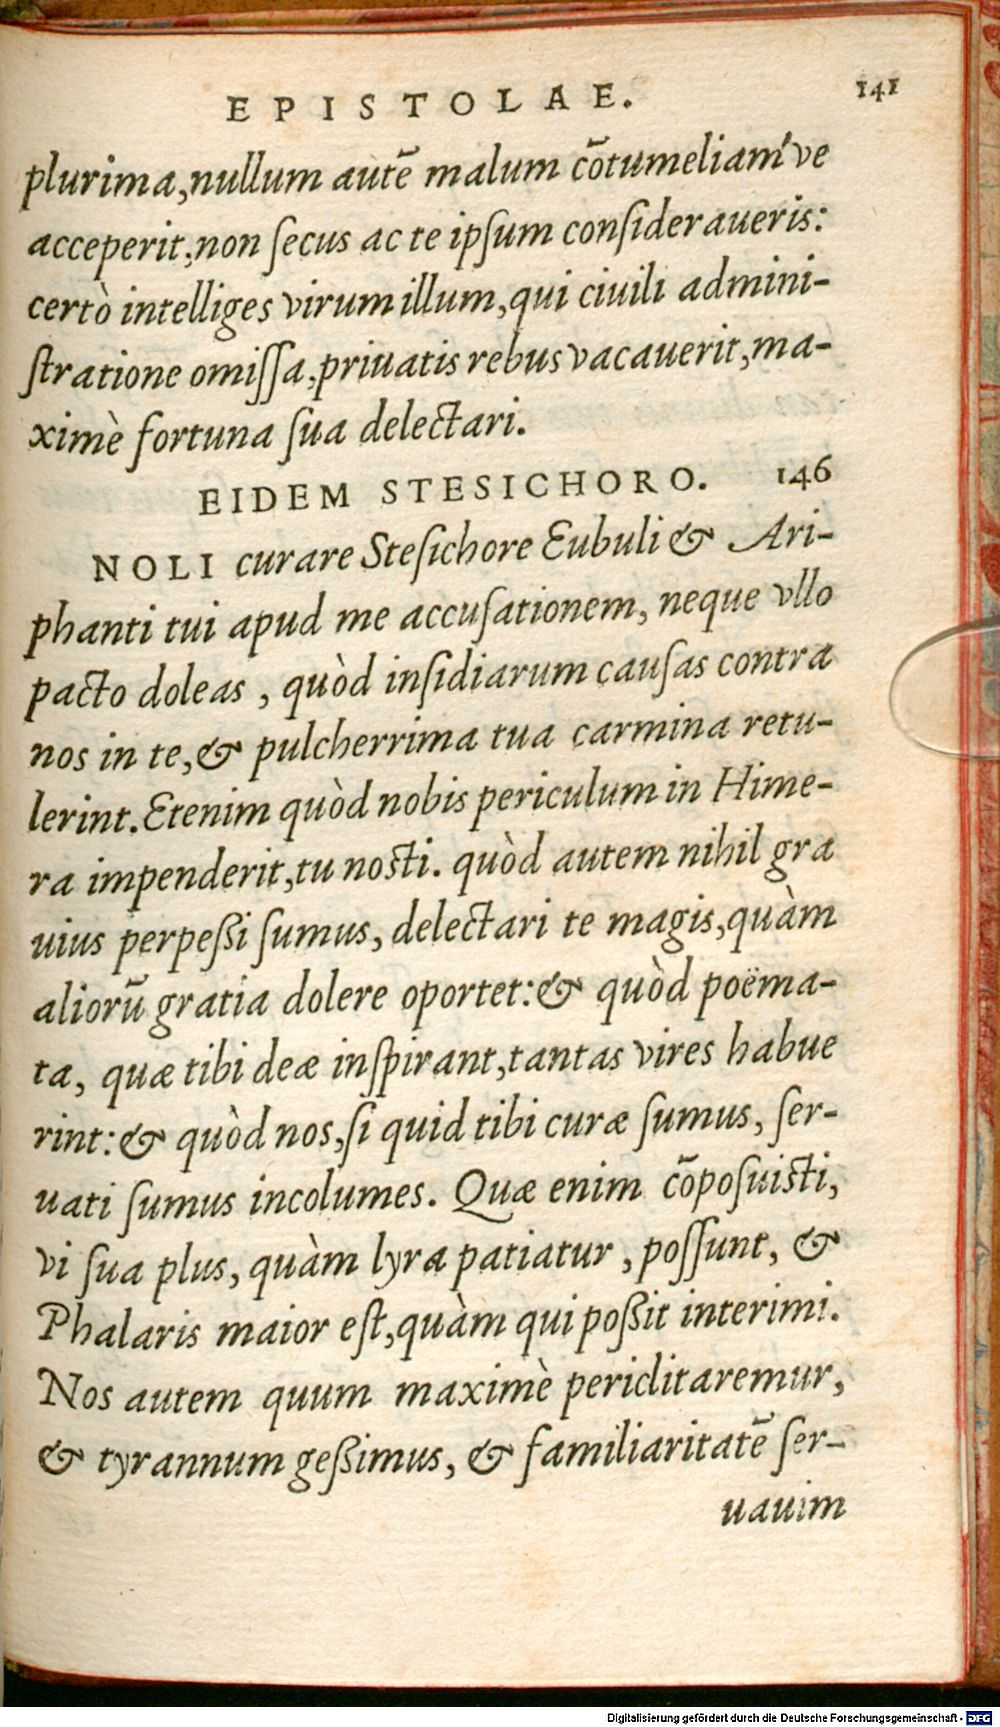 EPISTOLAE. 141
plurima, nullum autē malum cōtumeliam've
acceperit, non ſecus ac te ipſum conſideraueris:
certò intelliges virum illum, qui ciuili admini-
ſtratione omiſſa, priuatis rebus vacauerit, ma-
ximè fortuna ſua delectari.
EIDEM STESICHORO. 146
NOLI curare Steſichore Eubuli & Ari-
phanti tui apud me accuſationem, neque vllo
pacto doleas, quòd inſidiarum cauſas contra
nos in te, & pulcherrima tua carmina retu-
lerint. Etenim quòd nobis periculum in Hime-
ra impenderit, tu noſti. quòd autem nihil gra
uius perpeßi ſumus, delectari te magis, quàm
aliorū gratia dolere oportet: & quòd poëma-
ta, quæ tibi deæ inſpirant, tantas vires habue
rint: & quòd nos, ſi quid tibi curæ ſumus, ſer-
uati ſumus incolumes. Quæ enim cōpoſuiſti,
vi ſua plus, quàm lyra patiatur, poſſunt, &
Phalaris maior eſt, quàm qui poßit interimi.
Nos autem quum maximè periclitaremur,
& tyrannum geßimus, & familiaritatē ſer-
uauim
Digitalisierung gefördert durch die Deutsche Forschungsgemeinschaft - DFG